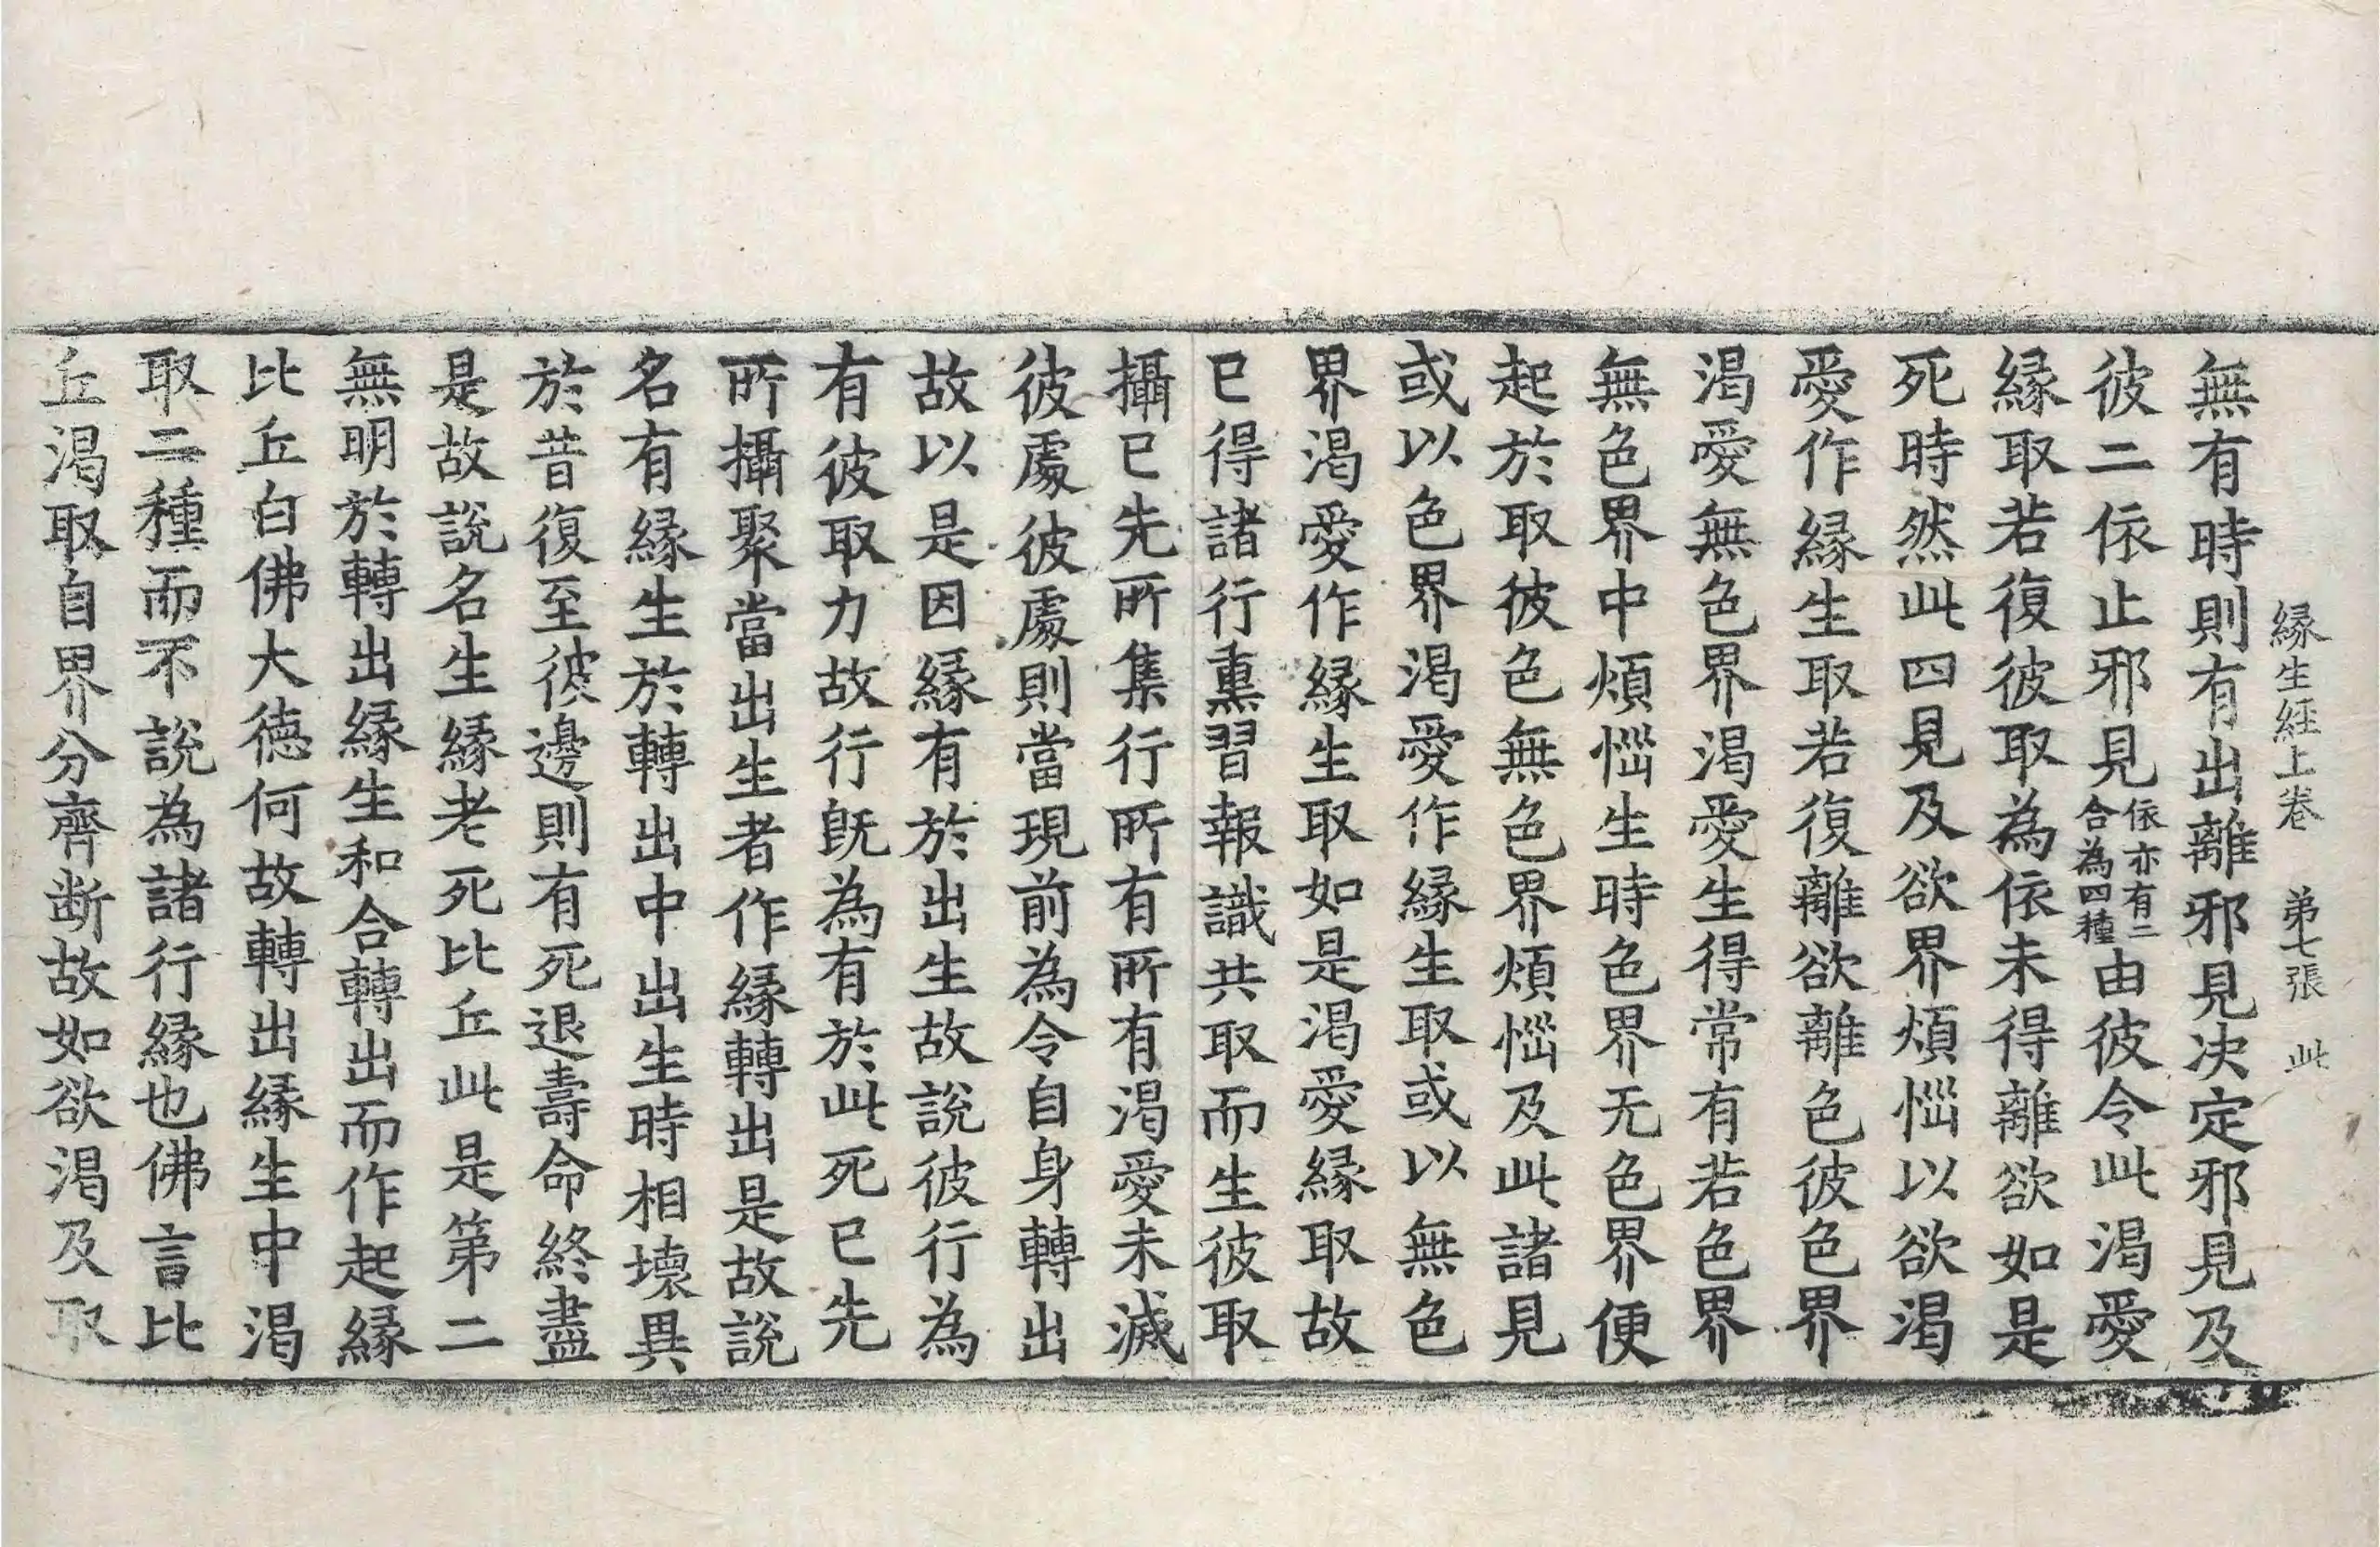 縁生経上卷 弟七張 此
無有時則有出離邪見决定邪見及
彼二依止邪見依亦有二合為四種由彼令此渇愛
縁取若復彼取為依未得離欲如是
死時然此四見及欲界煩惱以欲渇
愛作縁生取若復離欲離色彼色界
渇愛無色界渇愛生得常有若色界
無色界中煩惱生時色界无色界便
起於取彼色無色界煩惱及此諸見
或以色界渇愛作縁生取或以無色
界渇愛作縁生取如是渇愛縁取故
已得諸行熏習報識共取而生彼取
攝已先所集行所有所有渇愛未滅
彼處彼處則當現前為令自身轉出
故以是因縁有於出生故說彼行為
有彼取力故行既為有於此死已先
所攝聚當出生者作縁轉出是故說
名有縁生於轉出中出生時相壞異
於昔復至彼邊則有死退壽命終盡
是故說名生縁老死比丘此是第二
無明於轉出縁生和合轉出而作起縁
比丘白佛大德何故轉出縁生中渇
取二種而不說為諸行縁也佛言比
丘渇取自界分齊断故如欲渇及取